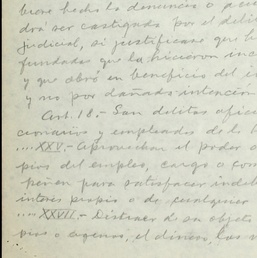 biese hecho la denuncia o acu
drá ser castigada por el deli
judicial, si justificase que h
fundadas que la hicieron inc
y que obró en beneficio del in
y no por dañada intención
Art. 18.- San delitos ofic
cionarios y empleados de la
....XXV.- Aprovechar el poder o
pios del empleo, cargo o com
peñen para satisfacer indeb
interés propio o de cualquier
....XXVII.- Distraer de su objeto
pio o ageno, el dinero, los